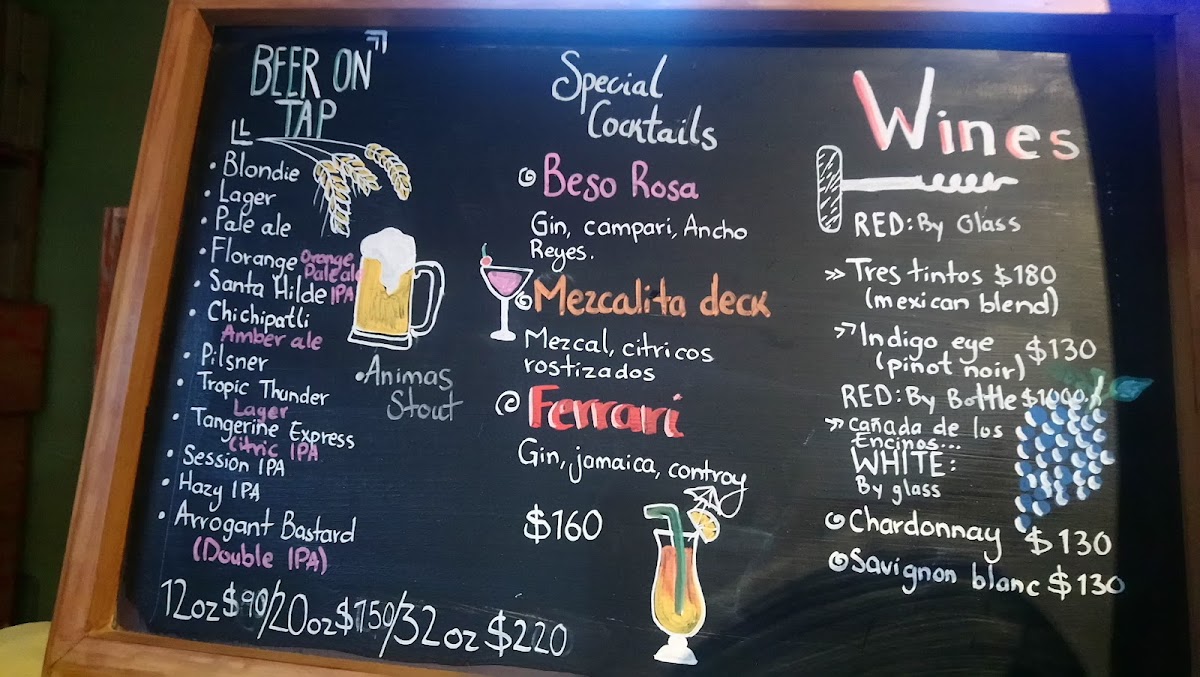 BEER ON
TAP
• Blondie
• Lager
• Pale ale
• Florange Orange
Pale ale
• Santa Hilde IPA
• Chichipatli
Amber ale
• Pilsner
• Tropic Thunder
Lager
• Tangerine Express
Citric IPA
• Session IPA
• Hazy IPA
• Arrogant Bastard
(Double IPA)
• Animas
Stout
12oz $90/20oz $150/32oz $220
Special
Cocktails
Beso Rosa
Gin, campari, Ancho
Reyes.
Mezcalita deck
Mezcal, citricos
rostizados
Ferrari
Gin, jamaica, controy
$160
Wines
RED: By Glass
Tres tintos $180
(mexican blend)
Indigo eye $130
(pinot noir)
RED: By Bottle $1000
cañada de los
Encinos...
WHITE:
By glass
Chardonnay $130
Savignon blanc $130